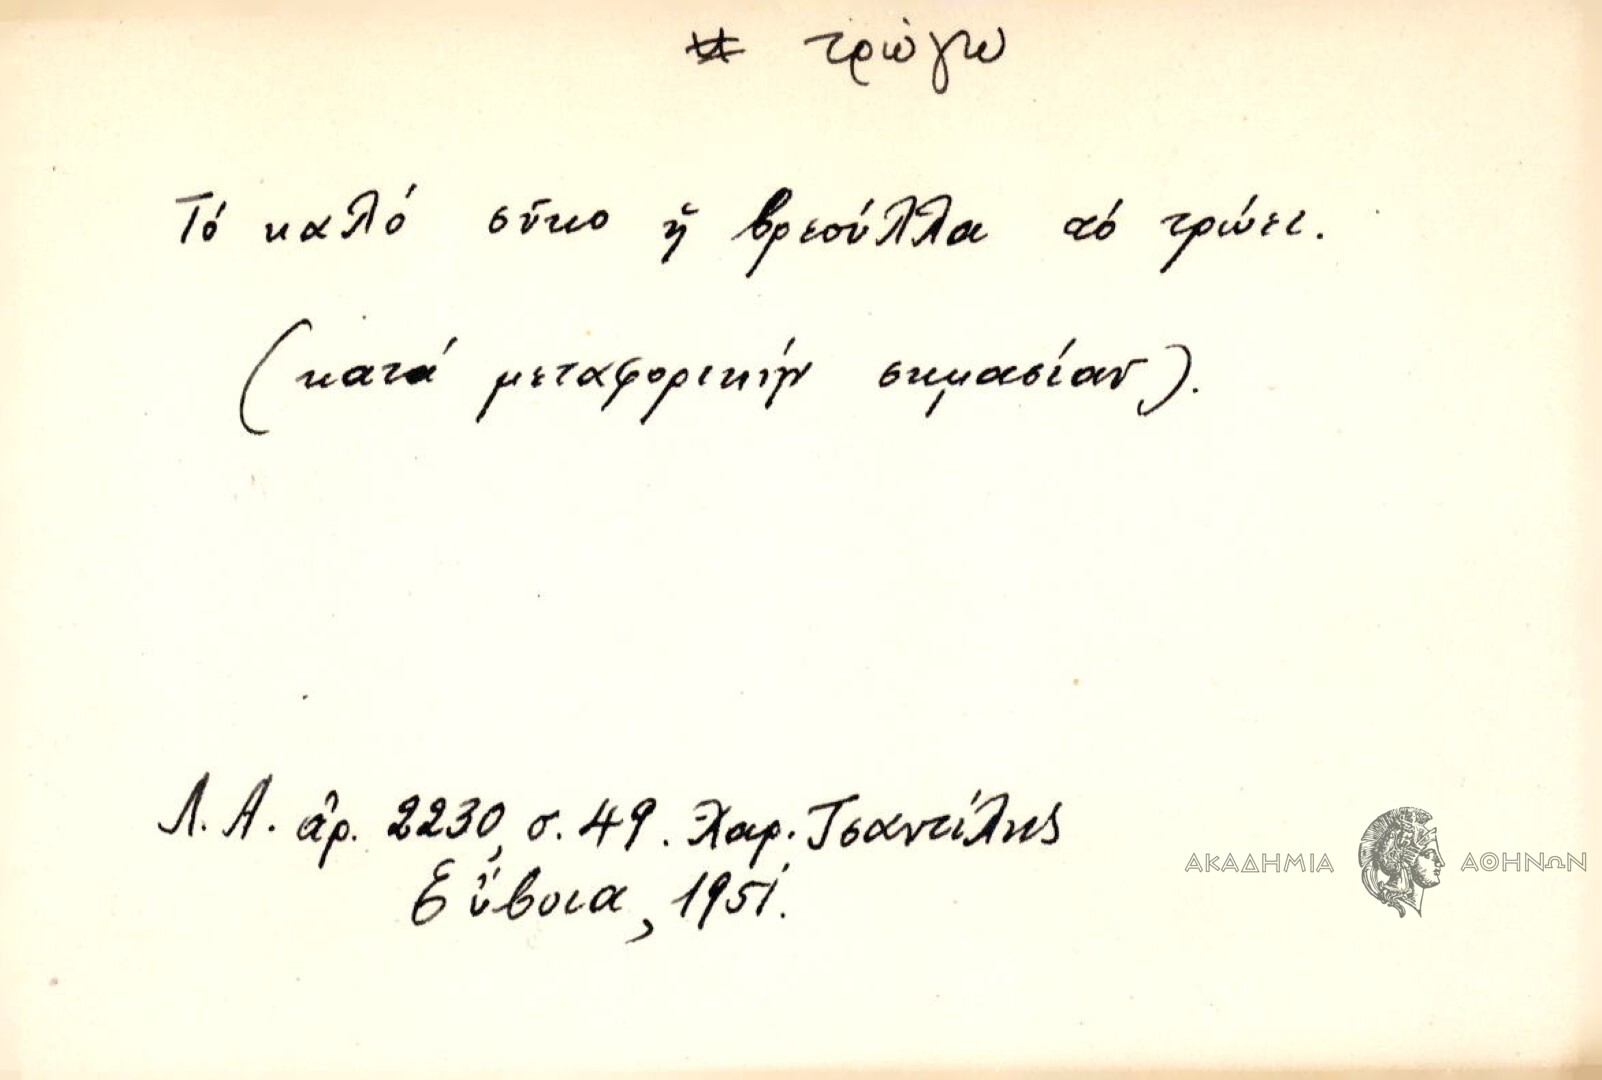 τρώγω
Τό καλό σῦκο ἤ βρεούλλα τό τρώει.
(κατά μεταφορικήν σημασίαν).
Λ.Α. ἀρ. 2230, σ. 49. Χαρ. Τσαντίλης
Εὔβοια, 1951.
ΑΚΑΔΗΜΙΑ ΑΘΗΝΩΝ